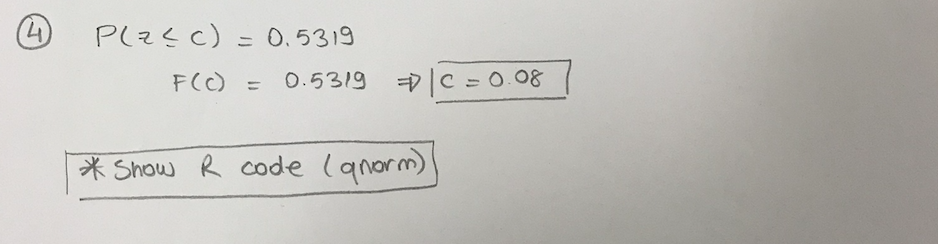 ④ P(z ≤ c) = 0.5319
F(c) = 0.5319 ⇒ c = 0.08
* Show R code (qnorm)